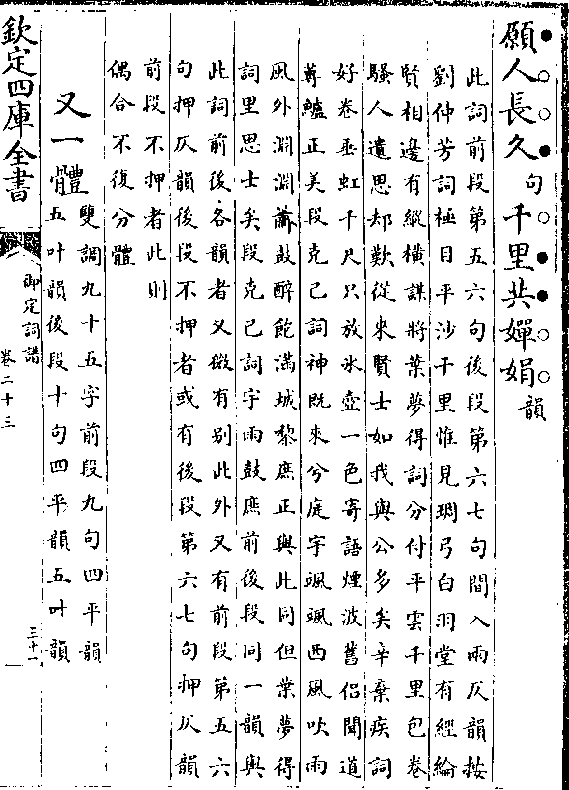 願人長久句千里共嬋娟韻
此詞前段第五六句後段第六七句間入兩仄韻按
劉仲芳詞極目平沙千里惟見琱弓白羽堂有經綸
賢相邊有縱橫謀將葉夢得詞分付平雲千里包卷
騷人遺思却歎從來賢士如我與公多矣辛棄疾詞
好卷垂虹千尺只放氷壺一色寄語煙波舊侣聞道
蓴鱸正美段克己詞神既來兮庭宇颯颯西風吹雨
風外淵淵簫鼓醉飽滿城黎庶正與此同但葉夢得
詞里思士矣段克己詞宇雨鼓庶前後段同一韻與
此詞前後各韻者又微有别此外又有前段第五六
句押仄韻後段不押者或有後段第六七句押仄韻
前段不押者此則
偶合不復分體
又一體雙調九十五字前段九句四平韻
五叶韻後段十句四平韻五叶韻
欽定四庫全書
御定詞譜
卷二十三
三十一